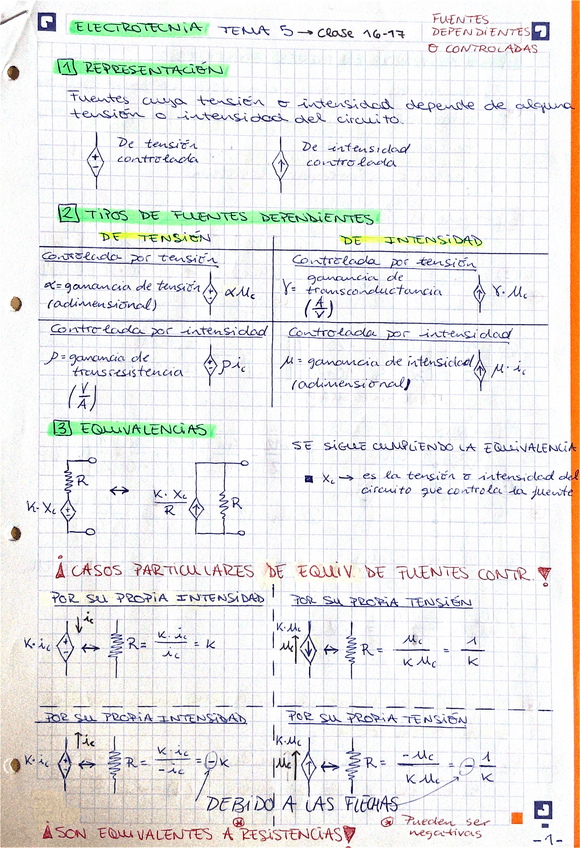 ELECTROTECNIA TEMA 5 → Clase 16-17
FUENTES
DEPENDIENTES
O CONTROLADAS
1 REPRESENTACIÓN
Fuentes cuya tensión o intensidad depende de alguna
tensión o intensidad del circuito.
De tensión
controlada
De intensidad
controlada
2 TIPOS DE FUENTES DEPENDIENTES
DE TENSIÓN
DE INTENSIDAD
Controlada por tensión
α = ganancia de tensión
(adimensional)
+
-
α u_c
Controlada por tensión
γ = ganancia de
transconductancia
(A/V)
γ · u_c
Controlada por intensidad
ρ = ganancia de
transresistencia
(V/A)
+
-
ρ i_c
Controlada por intensidad
μ = ganancia de intensidad
(adimensional)
μ · i_c
3 EQUIVALENCIAS
SE SIGUE CUMPLIENDO LA EQUIVALENCIA
X_c → es la tensión o intensidad del
circuito que controla la fuente
R
K · X_c
+
-
↔
K · X_c / R
R
¡CASOS PARTICULARES DE EQUIV. DE FUENTES CONTR.!
POR SU PROPIA INTENSIDAD
K · i_c
+
-
↓ i_c
↔
R = K · i_c / i_c = K
POR SU PROPIA TENSIÓN
K · u_c
u_c
↔
R = u_c / K u_c = 1 / K
POR SU PROPIA INTENSIDAD
K · i_c
+
-
↑ i_c
↔
R = K · i_c / -i_c = - K
POR SU PROPIA TENSIÓN
K · u_c
u_c
↔
R = -u_c / K u_c = - 1 / K
DEBIDO A LAS FLECHAS
¡SON EQUIVALENTES A RESISTENCIAS!
* Pueden ser
negativas
-1-